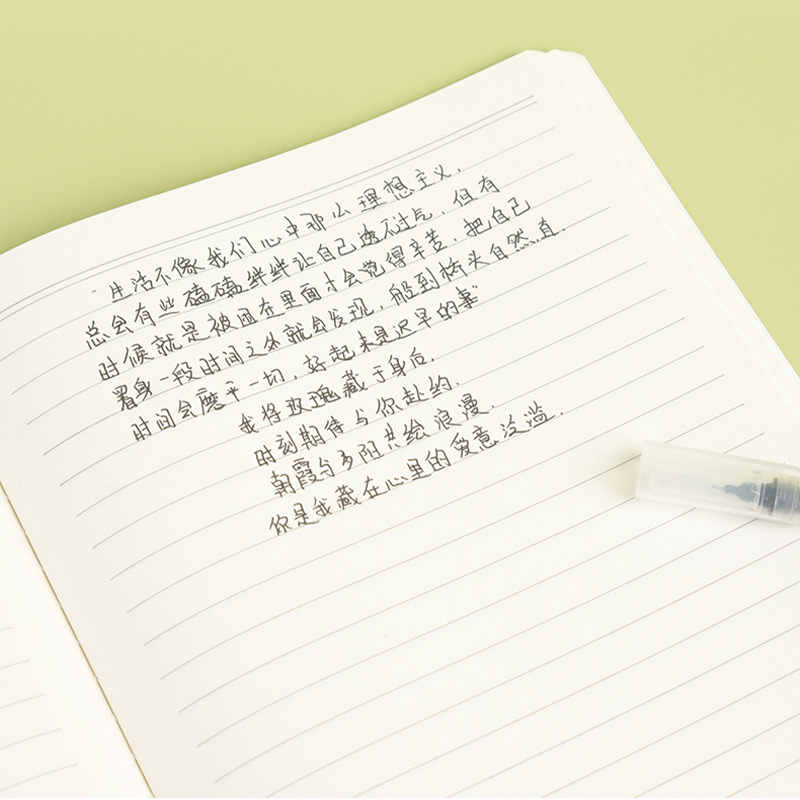 "生活不像我们心中那么理想主义,
总会有些磕磕绊绊让自己透不过气,但有
时候就是被困在里面才会觉得辛苦,把自己
置身一段时间之外就会发现,船到桥头自然直.
时间会磨平一切,好起来是迟早的事"
我将玫瑰藏于身后,
时刻期待与你赴约.
朝霞与夕阳共绘浪漫.
你是我藏在心里的爱意泛滥.